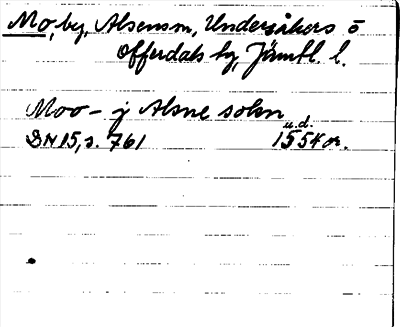 Mo, by, Alsensm, Undersåkers o
Offerdals tg, Jämtl. l.
Moo – j Alsne sokn
u.d.
DN 15, s. 761 1554 or.